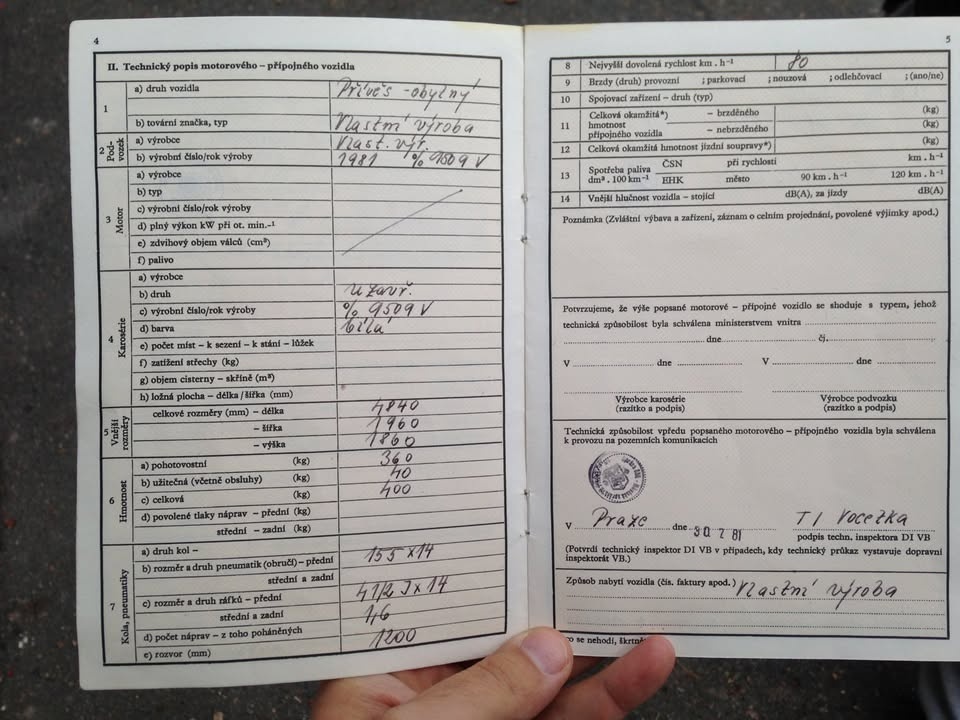 4
II. Technický popis motorového – přípojného vozidla
1
a) druh vozidla Přívěs - obytný
b) tovární značka, typ Vlastní výroba
2 Podvozek
a) výrobce Vlast. výr.
b) výrobní číslo/rok výroby 1981 % 9509 V
3 Motor
a) výrobce
b) typ
c) výrobní číslo/rok výroby
d) plný výkon kW při ot. min.⁻¹
e) zdvihový objem válců (cm³)
f) palivo
4 Karosérie
a) výrobce
b) druh uzavř.
c) výrobní číslo/rok výroby % 9509 V
d) barva bílá
e) počet míst – k sezení – k stání – lůžek
f) zatížení střechy (kg)
g) objem cisterny – skříně (m³)
h) ložná plocha – délka/šířka (mm)
5 Vnější rozměry
celkové rozměry (mm) – délka 4840
– šířka 1960
– výška 1860
6 Hmotnost
a) pohotovostní (kg) 360
b) užitečná (včetně obsluhy) (kg) 40
c) celková (kg) 400
d) povolené tlaky náprav – přední (kg)
střední – zadní (kg)
7 Kola, pneumatiky
a) druh kol –
b) rozměr a druh pneumatik (obručí) – přední 155 x 14
střední a zadní
c) rozměr a druh ráfků – přední 4 1/2 J x 14
střední a zadní
d) počet náprav – z toho poháněných
e) rozvor (mm) 1200
5
8 Nejvyšší dovolená rychlost km . h⁻¹ 80
9 Brzdy (druh) provozní ; parkovací ; nouzová ; odlehčovací ; (ano/ne)
10 Spojovací zařízení – druh (typ)
11 Celková okamžitá*) hmotnost přípojného vozidla
– brzděného (kg)
– nebrzděného (kg)
12 Celková okamžitá hmotnost jízdní soupravy*) (kg)
13 Spotřeba paliva dm³ . 100 km⁻¹
ČSN při rychlosti km . h⁻¹
EHK město 90 km . h⁻¹ 120 km . h⁻¹
14 Vnější hlučnost vozidla – stojící dB(A), za jízdy dB(A)
Poznámka (Zvláštní výbava a zařízení, záznam o celním projednání, povolené výjimky apod.)
Potvrzujeme, že výše popsané motorové – přípojné vozidlo se shoduje s typem, jehož
technická způsobilost byla schválena ministerstvem vnitra
dne čj.
V dne V dne
Výrobce karosérie Výrobce podvozku
(razítko a podpis) (razítko a podpis)
Technická způsobilost vpředu popsaného motorového – přípojného vozidla byla schválena
k provozu na pozemních komunikacích
V Praze dne 30 7 81
podpis techn. inspektora DI VB
(Potvrdí technický inspektor DI VB v případech, kdy technický průkaz vystavuje dopravní
inspektorát VB.)
Způsob nabytí vozidla (čís. faktury apod.) Vlastní výroba
co se nehodí, škrtně